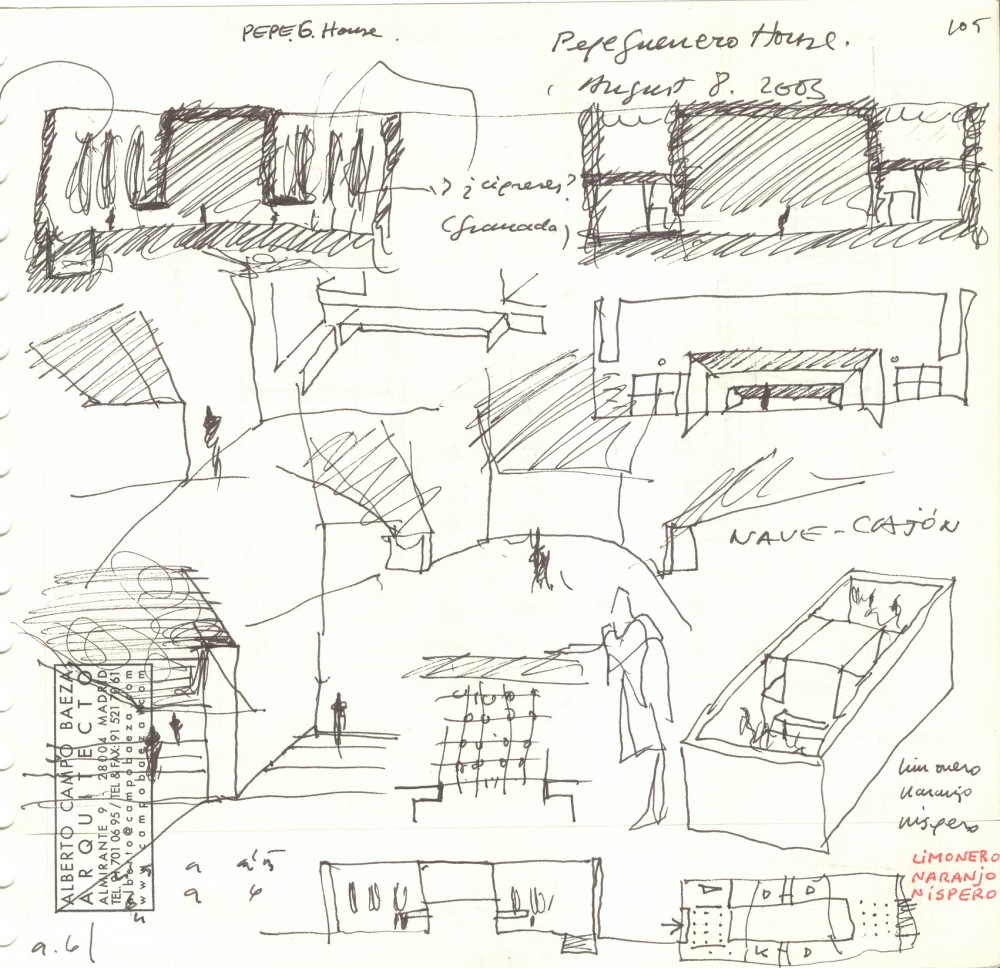 PEPE.G. House.
Pepe Guerrero House.
105
August 8. 2003
? ¿cipreses?
(Granada)
NAVE-CAJÓN
limonero
naranjo
níspero
LIMONERO
NARANJO
NÍSPERO
ALBERTO CAMPO BAEZA
ARQUITECTO
ALMIRANTE 9 28004 MADRID
TEL. 91 701 06 95 / TEL & FAX: 91 521 70 61
alberto@campobaeza.com
www.campobaeza.com
A
D
D
K
D